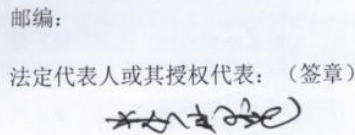 邮编：
法定代表人或其授权代表：（签章）